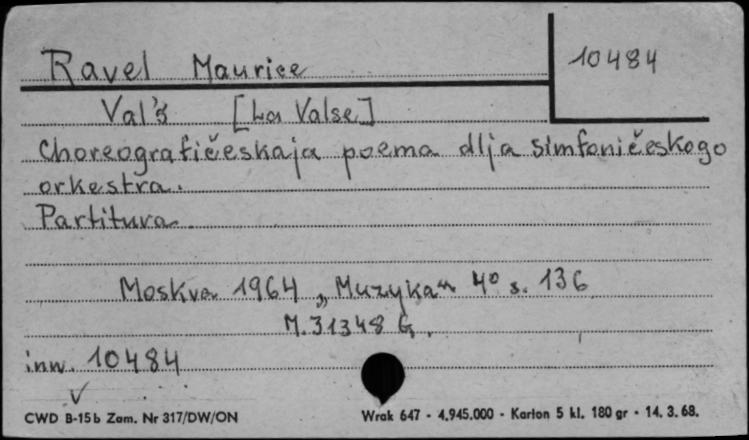 Ravel Maurice
10484
Val's [La Valse]
Choreografičeskaja poema dlja simfoničeskogo
orkestra.
Partitura.
Moskva 1964 „Muzyka" 4° s. 136
M. 31348 G.
inw. 10484
CWD B-15b Zam. Nr 317/DW/ON
Wrak 647 - 4.945.000 - Karton 5 kl. 180 gr - 14. 3. 68.